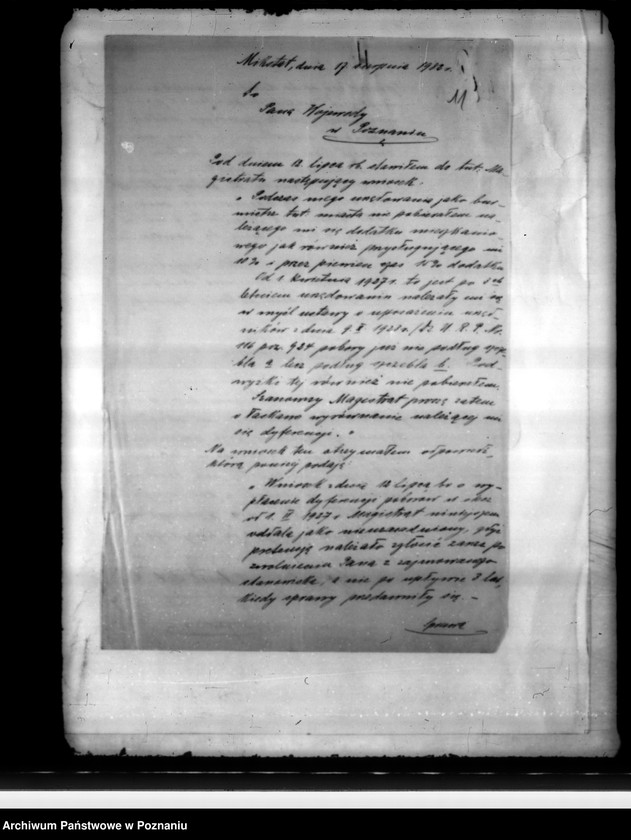 Mikstat, dnia 17 sierpnia 1932 r.
11
Do
Pana Wojewody
w Poznaniu
Pod dniem 12 lipca rb. stawiłem do tut. Ma-
gistratu następujący wniosek:
"Podczas mego urzędowania jako bur-
mistrz tut. miasta nie pobierałem na-
leżącego mi się dodatku mieszkanio-
wego jak również przysługującego mi
10% i przez pewien czas 15% dodatku
Od 1 kwietnia 1927 r. to jest po 3
letniem urzędowaniu należały mi się
w myśl ustawy o uposażeniu urzęd-
ników z dnia 9. X 1923 r. /Dz. U. R. P. No.
116 poz. 924 pobory już nie podług szcze-
bla a lecz podług szczebla b. Pod-
wyżki tej również nie pobierałem.
Szanowny Magistrat proszę zatem
o łaskawe wyrównanie należącej mi
się dyferencji."
Na wniosek ten otrzymałem odpowiedź,
którą poniżej podaję:
"Wniosek z dnia 12 lipca br. o wy-
płacenie dyferencji poborów w czasie
od 1. 1927 r. Magistrat niniejszem
oddala jako nieuzasadniony, gdyż
pretensję należało zgłosić zaraz po
zwolnieniu Pana z zajmowanego
stanowiska, a nie po upływie 3 lat,
kiedy sprawy przedawniły się. -
Archiwum Państwowe w Poznaniu